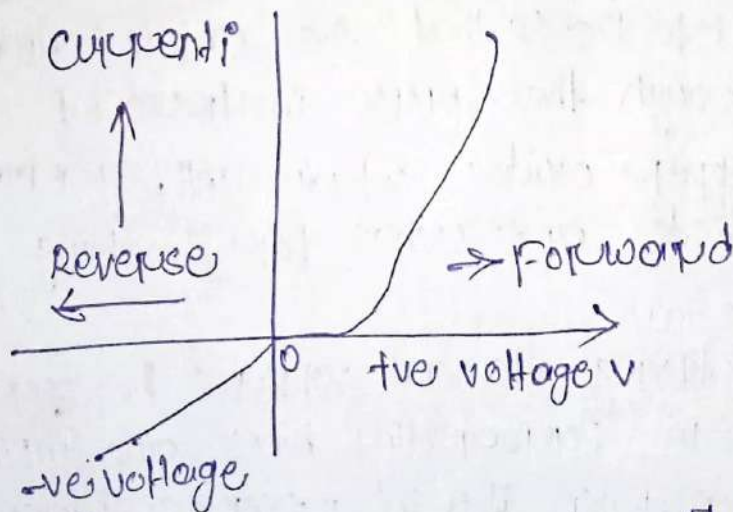 Current i
Reverse
→ Forward
0
+ve voltage v
-ve voltage